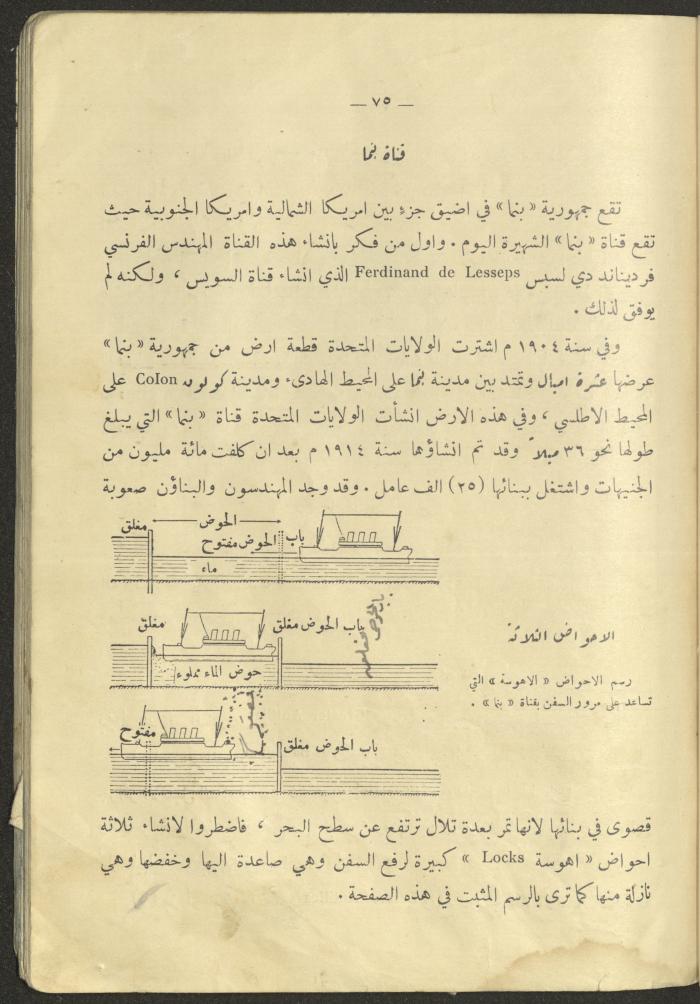 — ٧٥ —
قناة بنما
تقع جمهورية « بنما » في اضيق جزء بين امريكا الشمالية وامريكا الجنوبية حيث
تقع قناة « بنما » الشهيرة اليوم . واول من فكر بانشاء هذه القناة المهندس الفرنسي
فرديناند دي لسبس Ferdinand de Lesseps الذي انشاء قناة السويس ، ولكنه لم
يوفق لذلك .
وفي سنة ١٩٠٤ م اشترت الولايات المتحدة قطعة ارض من جمهورية « بنما »
عرضها عشرة اميال وتمتد بين مدينة بنما على المحيط الهادىء ومدينة كولون Colon على
المحيط الاطلسي ، وفي هذه الارض انشأت الولايات المتحدة قناة « بنما » التي يبلغ
طولها نحو ٣٦ ميلاً وقد تم انشاؤها سنة ١٩١٤ م بعد ان كلفت مائة مليون من
الجنيهات واشتغل ببنائها (٢٥) الف عامل . وقد وجد المهندسون والبناؤن صعوبة
الحوض
مغلق
باب الحوض مفتوح
ماء
باب الحوض مغلق
مغلق
حوض الماء مملوء
الاحواض الثلاثة
رسم الاحواض « الاهوسة » التي
تساعد على مرور السفن بقناة « بنما » .
مفتوح
باب الحوض مغلق
قصوى في بنائها لانها تمر بعدة تلال ترتفع عن سطح البحر ، فاضطروا لانشاء ثلاثة
احواض « اهوسة Locks » كبيرة لرفع السفن وهي صاعدة اليها وخفضها وهي
نازلة منها كما ترى بالرسم المثبت في هذه الصفحة .